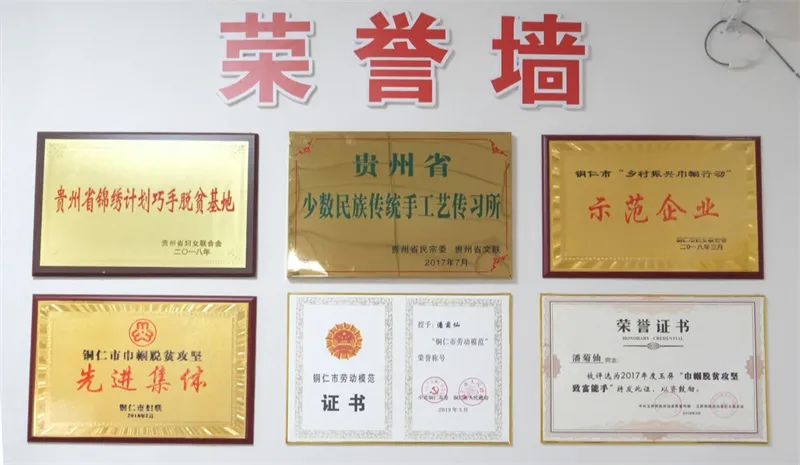 荣誉墙
贵州省锦绣计划巧手脱贫基地
贵州省妇女联合会
二〇一八年
贵州省
少数民族传统手工艺传习所
贵州省民宗委 贵州省文联
2017年7月
铜仁市“乡村振兴巾帼行动”
示范企业
铜仁市妇女联合会
二〇一八年三月
铜仁市巾帼脱贫攻坚
先进集体
铜仁市妇联
铜仁市劳动模范
证书
授予：潘菊仙
“铜仁市劳动模范”
荣誉称号
2019年5月
荣誉证书
HONORARY CREDENTIAL
潘菊仙 同志：
被评选为2017年度玉屏“巾帼脱贫攻坚
致富能手”特发此证，以资鼓励。